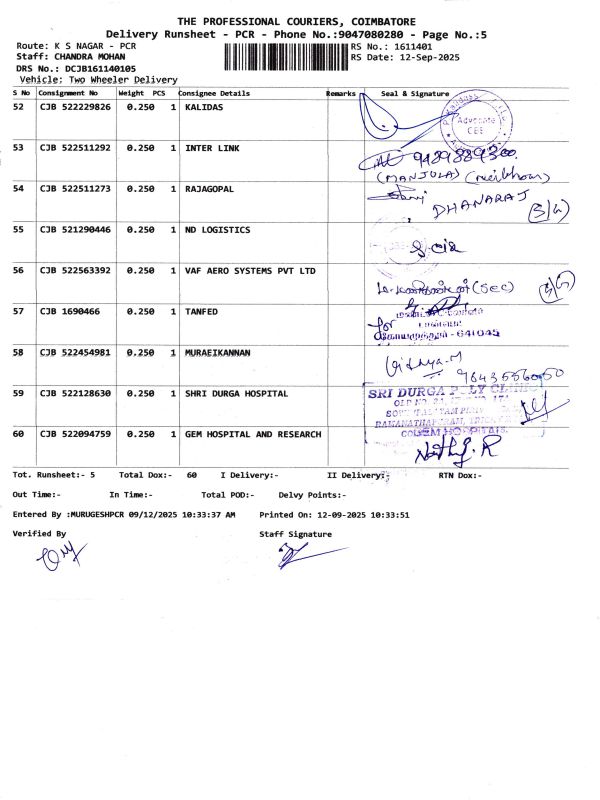 THE PROFESSIONAL COURIERS, COIMBATORE
Delivery Runsheet - PCR - Phone No.:9047080280 - Page No.:5
Route: K S NAGAR - PCR RS No.: 1611401
Staff: CHANDRA MOHAN RS Date: 12-Sep-2025
DRS No.: DCJB161140105
Vehicle: Two Wheeler Delivery
S No Consignment No Weight PCS Consignee Details Remarks Seal & Signature
52 CJB 522229826 0.250 1 KALIDAS
Advocate
CBE
53 CJB 522511292 0.250 1 INTER LINK
(MANJULA)
54 CJB 522511273 0.250 1 RAJAGOPAL
DHANARAJ
55 CJB 521290446 0.250 1 ND LOGISTICS
56 CJB 522563392 0.250 1 VAF AERO SYSTEMS PVT LTD
(SEC)
57 CJB 1690466 0.250 1 TANFED
for
- 641045
58 CJB 522454981 0.250 1 MURAEIKANNAN
Vidhya.M
59 CJB 522128630 0.250 1 SHRI DURGA HOSPITAL
SRI DURGA POLY CLINIC
60 CJB 522094759 0.250 1 GEM HOSPITAL AND RESEARCH
Tot. Runsheet:- 5 Total Dox:- 60 I Delivery:- II Delivery:- RTN Dox:-
Out Time:- In Time:- Total POD:- Delvy Points:-
Entered By :MURUGESHPCR 09/12/2025 10:33:37 AM Printed On: 12-09-2025 10:33:51
Verified By Staff Signature